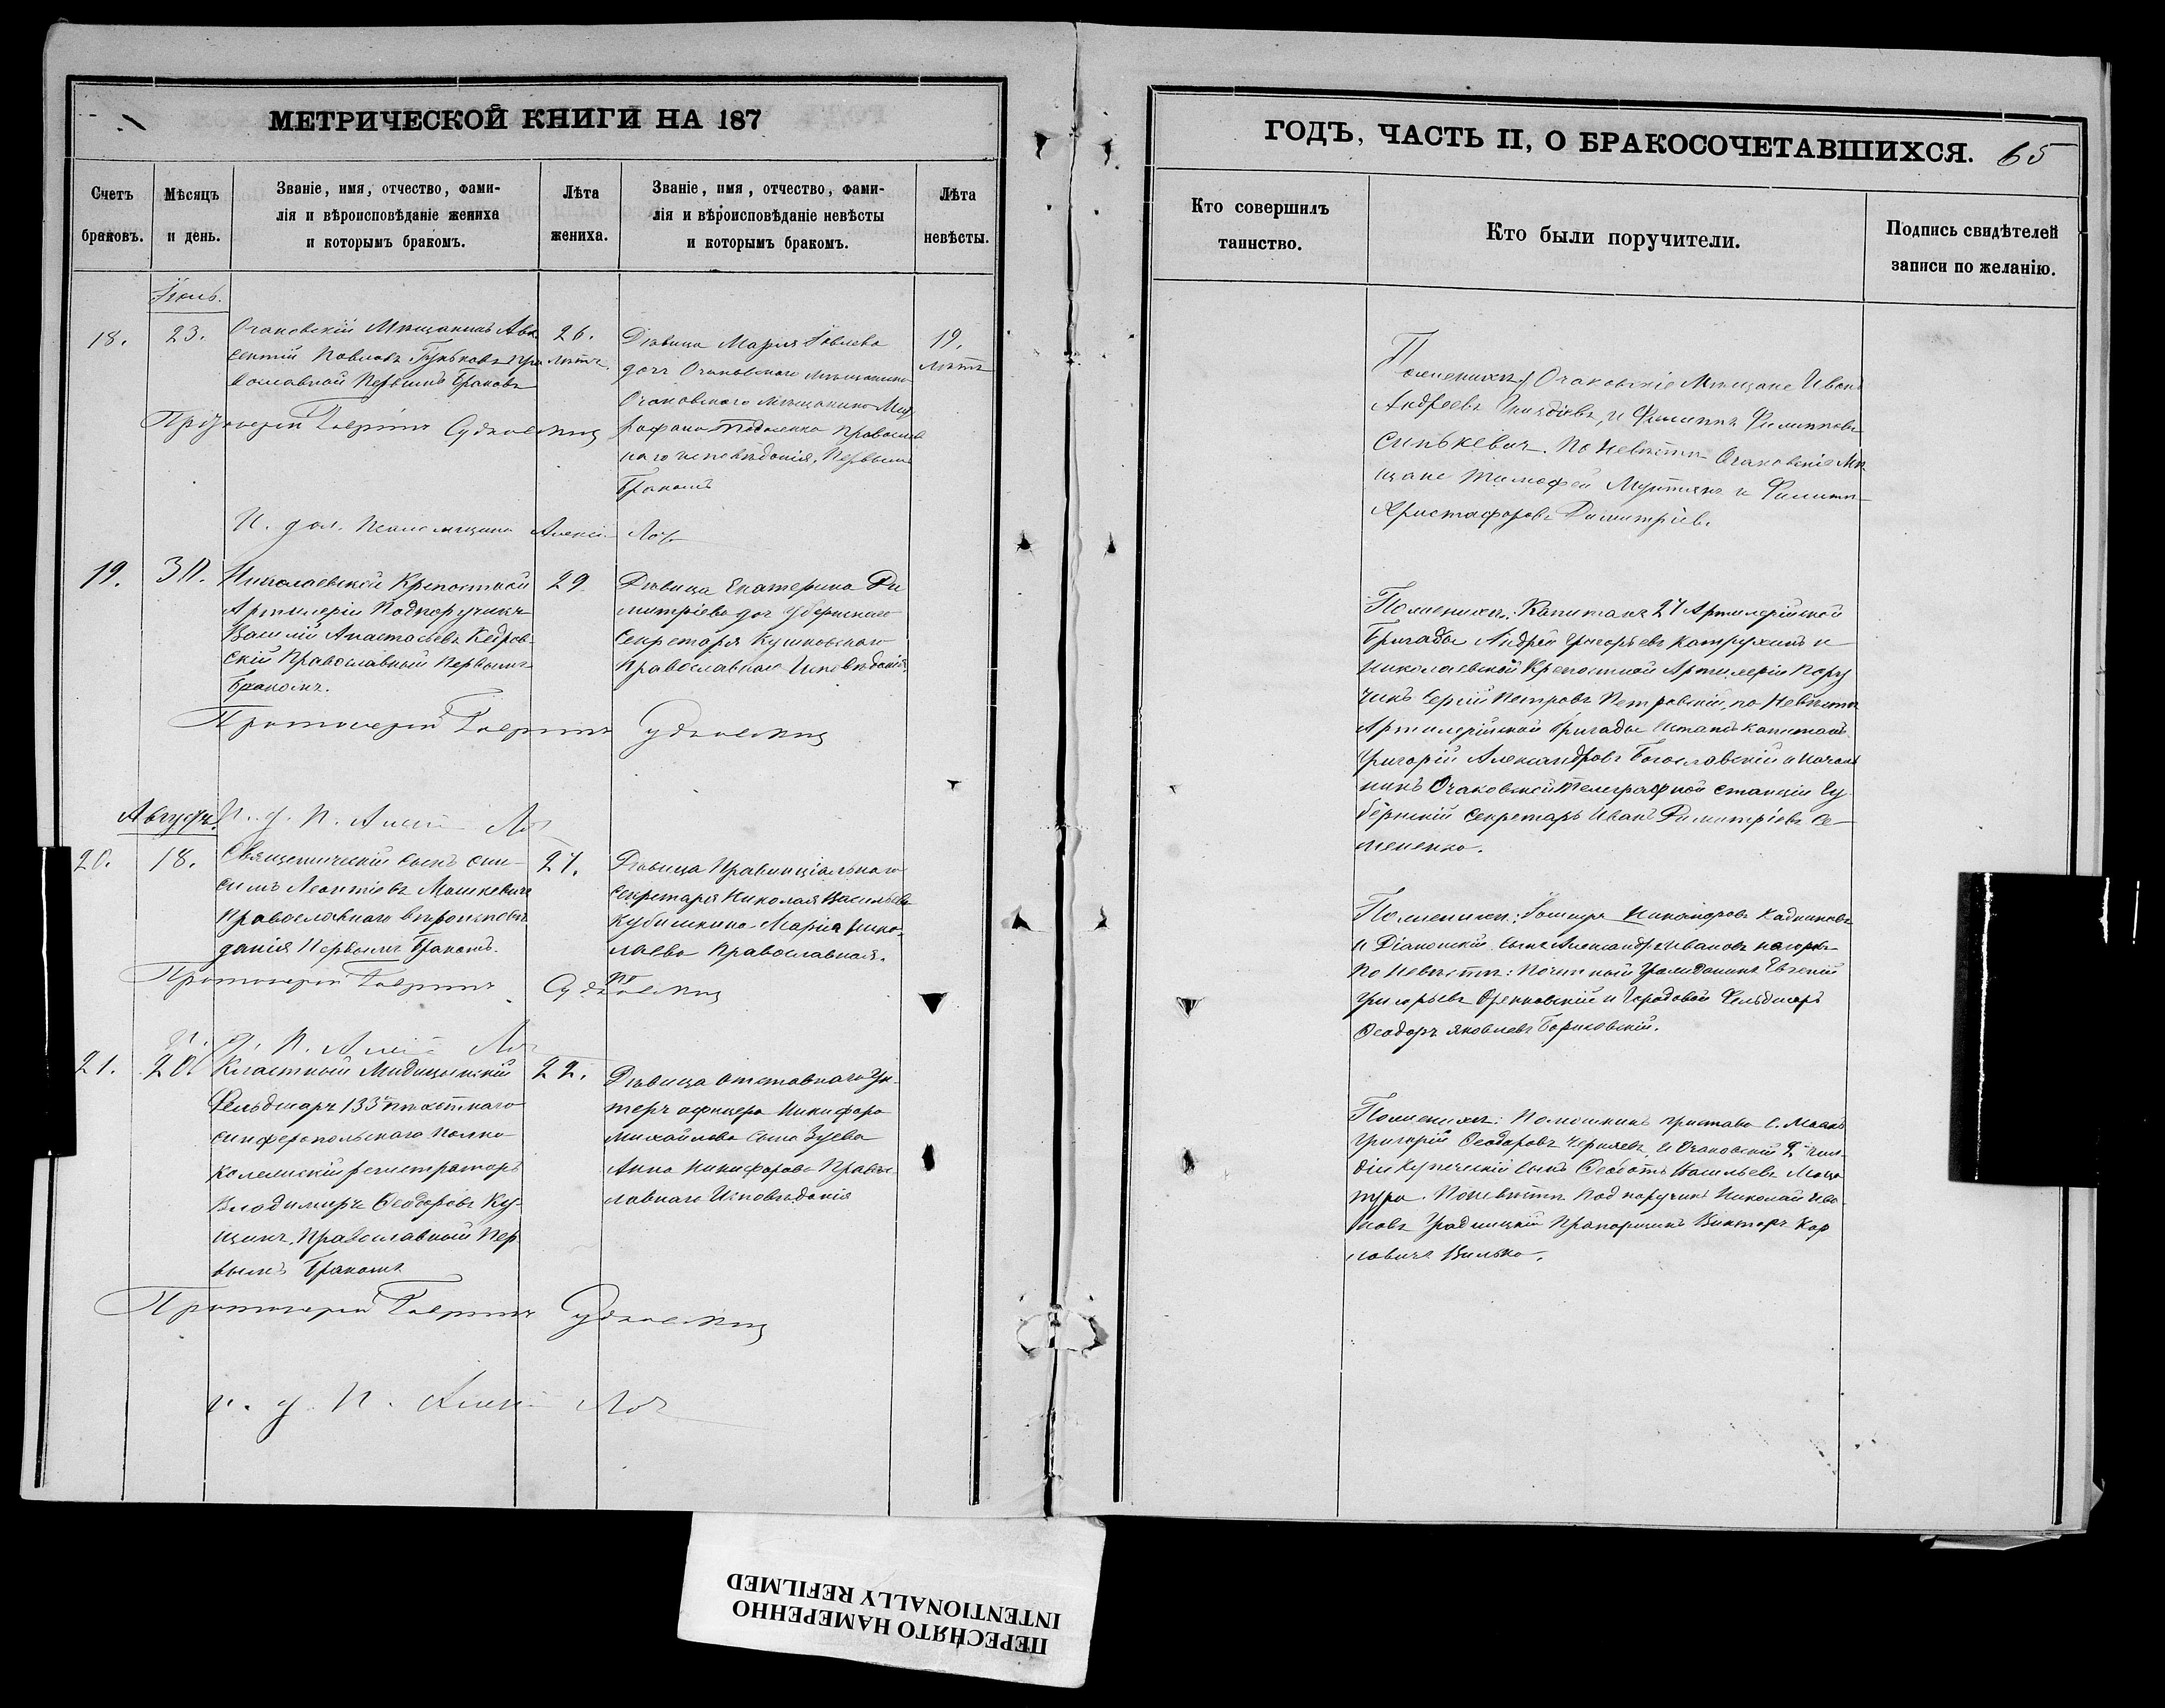 МЕТРИЧЕСКОЙ КНИГИ НА 187
Счетъ браковъ.
Мѣсяцъ и день.
Званіе, имя, отчество, фами-
лія и вѣроисповѣданіе жениха
и которымъ бракомъ.
Лѣта жениха.
Званіе, имя, отчество, фами-
лія и вѣроисповѣданіе невѣсты
и которымъ бракомъ.
Лѣта невѣсты.
18.
23.
Очаковскій Мѣщанинъ Авк
сентій Павловъ
вославной Первымъ Бракомъ
26.
лѣтъ.
Дѣвица Марія
доч Очаковского мѣщанина
Очаковского мѣщанина Мит
рофана Православ
наго исповѣданія, Первымъ
Бракомъ
19.
лѣтъ
Протоіерей Гавріилъ Судковскій
И. дол. Псаломщика Алексій
19.
30.
Николаевской Крепостной
Артилеріи Подпоручикъ
Василій Анастасьевъ Кедров-
скій Православный Первымъ
Бракомъ.
29
Дѣвица Екатерина Ди
митріева доч Губернского
Секретаря Кушковского
Православнаго Исповѣданія
Протоіерей Гавріилъ Судковскій
Августъ
И. д. П. Алексій
20.
18.
Священическій сынъ Они-
симъ Леонтіевъ Мошкевичъ
Православнаго вѣроисповѣ
данія Первымъ Бракомъ.
27.
Дѣвица Правинціальнаго
Секретаря Николая Васильева
Кубишкина Марія Нико-
лаева Православная.
Протоіерей Гавріилъ Судковскій
и. д. П. Алексій
21.
20.
Класнный Мидицынскій
Фельдшаръ 133 пѣхотнаго
Симферопольскаго полка
Колежскій регистраторъ
Владимиръ Феодоровъ Ку-
щинъ, Православный Пер
вымъ Бракомъ
22.
Дѣвица Отставнаго Ун-
теръ офицера Никифора
Михайлова Сына Зуева
Анна Никифорова Право-
славнаго Исповѣданія
Протоіерей Гавріилъ Судковскій
и. д. П. Алексій
ГОДЪ, ЧАСТЬ II, О БРАКОСОЧЕТАВШИХСЯ. 65
Кто совершилъ
таинство.
Кто были поручители.
Подпись свидѣтелей
записи по желанію.
По женихѣ: Очаковскіе Мѣщане Иванъ
Андреевъ и Филиппъ Филипповъ
Синькевич. По Невѣстѣ Очаковскіе Мѣ
щане Тимофей и Филиппъ
Христофоровъ Димитріев.
По женихѣ: Капитанъ 27 Артилерійской
Бригады Андрей Григорьевъ и
Николаевской Крепостной Артилеріи Пору
чикъ Сергій Петровъ Петровскій, по Невѣсте
Артилерійской бригады Штапсъ Капитанъ
Григорій Александровъ Богославскій и Началь
никъ Очаковской Телеграфной станціи Гу
бернскій Секретарь Иванъ Димитріевъ Се-
мененко.
По женихѣ: Никаноровъ
и Діаконскій сынъ Александръ Ивановъ
По Невѣстѣ: Почетный Гражданинъ Евгеній
Григорьевъ и Городовой Фельдшаръ
Феодоръ Яковлевъ Бориковскій.
По женихѣ: Помошникъ пристава
Григорій Феодоровъ Черняевъ, и Очаковскій 2 гиль-
діи Купеческій сынъ Васильевъ Маца
пура. По невѣстѣ Подпоручикъ Николай Ива-
новъ Прапорщикъ Викторъ Кар
ловичъ Вилько.
ПЕРЕСНЯТО НАМЕРЕННО
INTENTIONALLY REFILMED